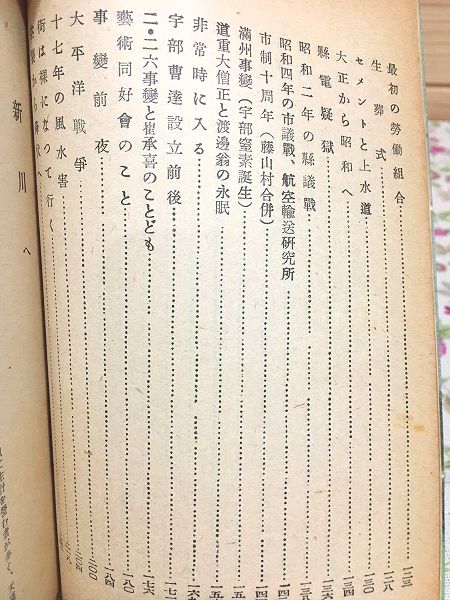 最初の勞働組合……一二三
生葬式……一二八
セメントと上水道……一三〇
大正から昭和へ……一三四
縣電疑獄……一三六
昭和二年の縣議戰……一三八
昭和四年の市議戰、航空輸送硏究所
市制十周年(藤山村合併)
滿州事變(宇部窒素誕生)
道重大僧正と渡邊翁の永眠
非常時に入る
宇部曹達設立前後……一七二
二・二六事變と崔承喜のことども……一七六
藝術同好會のこと……一八〇
事變前夜……一八四
大平洋戰爭……二〇〇
十七年の風水害
街は裸になつて行く
新川へ